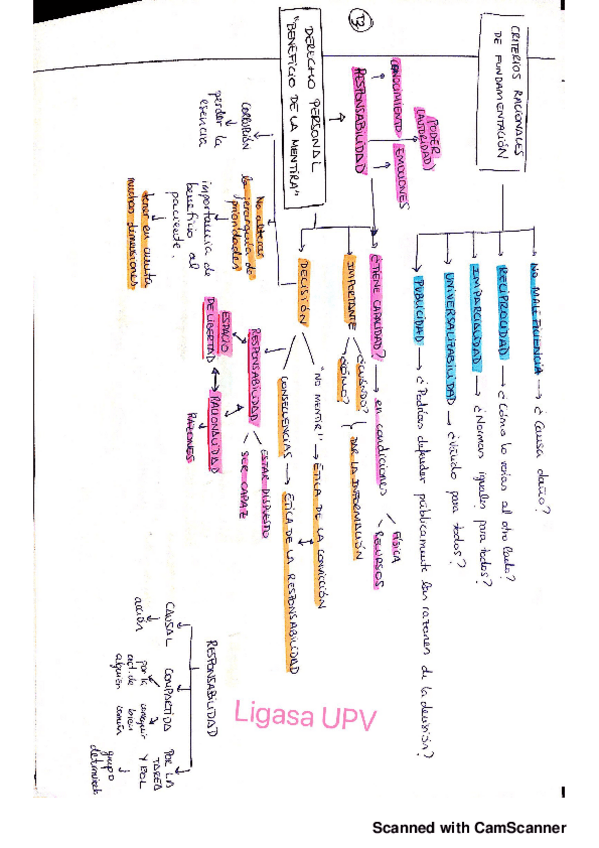 T2
CRITERIOS RACIONALES
DE FUNDAMENTACIÓN
NO MALEFICENCIA → ¿Causa daño?
RECIPROCIDAD → ¿Cómo lo verías al otro lado?
IMPARCIALIDAD → ¿Normas iguales para todos?
UNIVERSALITABILIDAD → ¿Válido para todos?
PUBLICIDAD → ¿Podrías defender públicamente las razones de la decisión?
PODER
(AUTORIDAD)
CONOCIMIENTO
EMOCIONES
RESPONSABILIDAD
DERECHO PERSONAL
"BENEFICIO DE LA MENTIRA"
¿TIENE CAPACIDAD? → en condiciones
FÍSICA
RECURSOS
IMPORTANTE
¿CUÁNDO?
¿CÓMO?
DAR LA INFORMACIÓN
DECISIÓN
"NO MENTIR" → ÉTICA DE LA CONVICCIÓN
CONSECUENCIAS → ÉTICA DE LA RESPONSABILIDAD
RESPONSABILIDAD
ESTAR DISPUESTO
SER CAPAZ
ESPACIO
DE LIBERTAD ↔ RACIONALIDAD
RAZONES
CORRUPCIÓN
perder la
esencia
No alterar
la jerarquía de
prioridades
importancia de
beneficio al
paciente.
tener en cuenta
muchas dimensiones
RESPONSABILIDAD
CAUSAL
acción
COMPARTIDA
por la
act. de
alguien
conseguir
bien
común
POR LA
TAREA
Y ROL
grupo
determinado
Ligasa UPV
Scanned with CamScanner